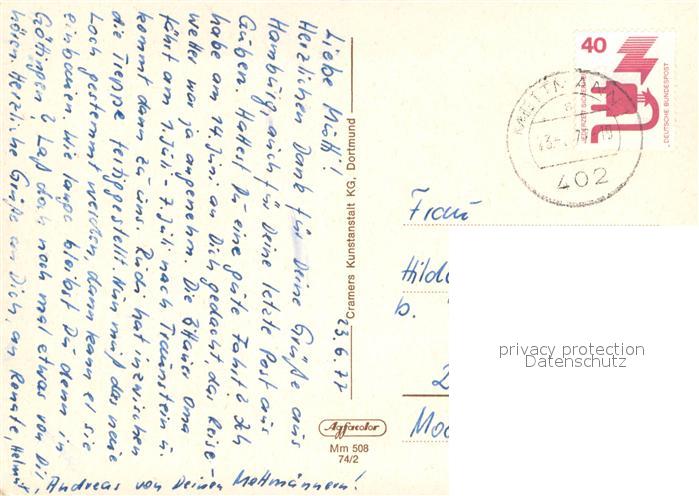 23.6.77
Liebe Mutti!
Herzlichen Dank für Deine Grüße aus
Hamburg, auch für Deine letzte Post aus
Guben. Hattest Du eine gute Fahrt? Ich
habe am 14. Juni an Dich gedacht, das Reise-
wetter war ja angenehm. Die Oma
fährt am 1. Juli - 7. Juli nach Traunstein u.
kommt dann zu uns. Rudi hat inzwischen
die Treppe fertiggestellt. Nun muß das neue
Loch gestemmt werden, dann kann er sie
einbauen. Wie lange bleibst Du denn in
Göttingen? Laß doch noch mal etwas von Dir
hören. Herzliche Grüße an Dich, an Renate, Helmut
Andreas von Deinen Mettmännern!
Cramers Kunstanstalt KG, Dortmund
Agfacolor
Mm 508
74/2
40
JEDERZEIT SICHERHEIT
DEUTSCHE BUNDESPOST
METTMANN
402
Frau
Hilde
b.
2
privacy protection
Datenschutz